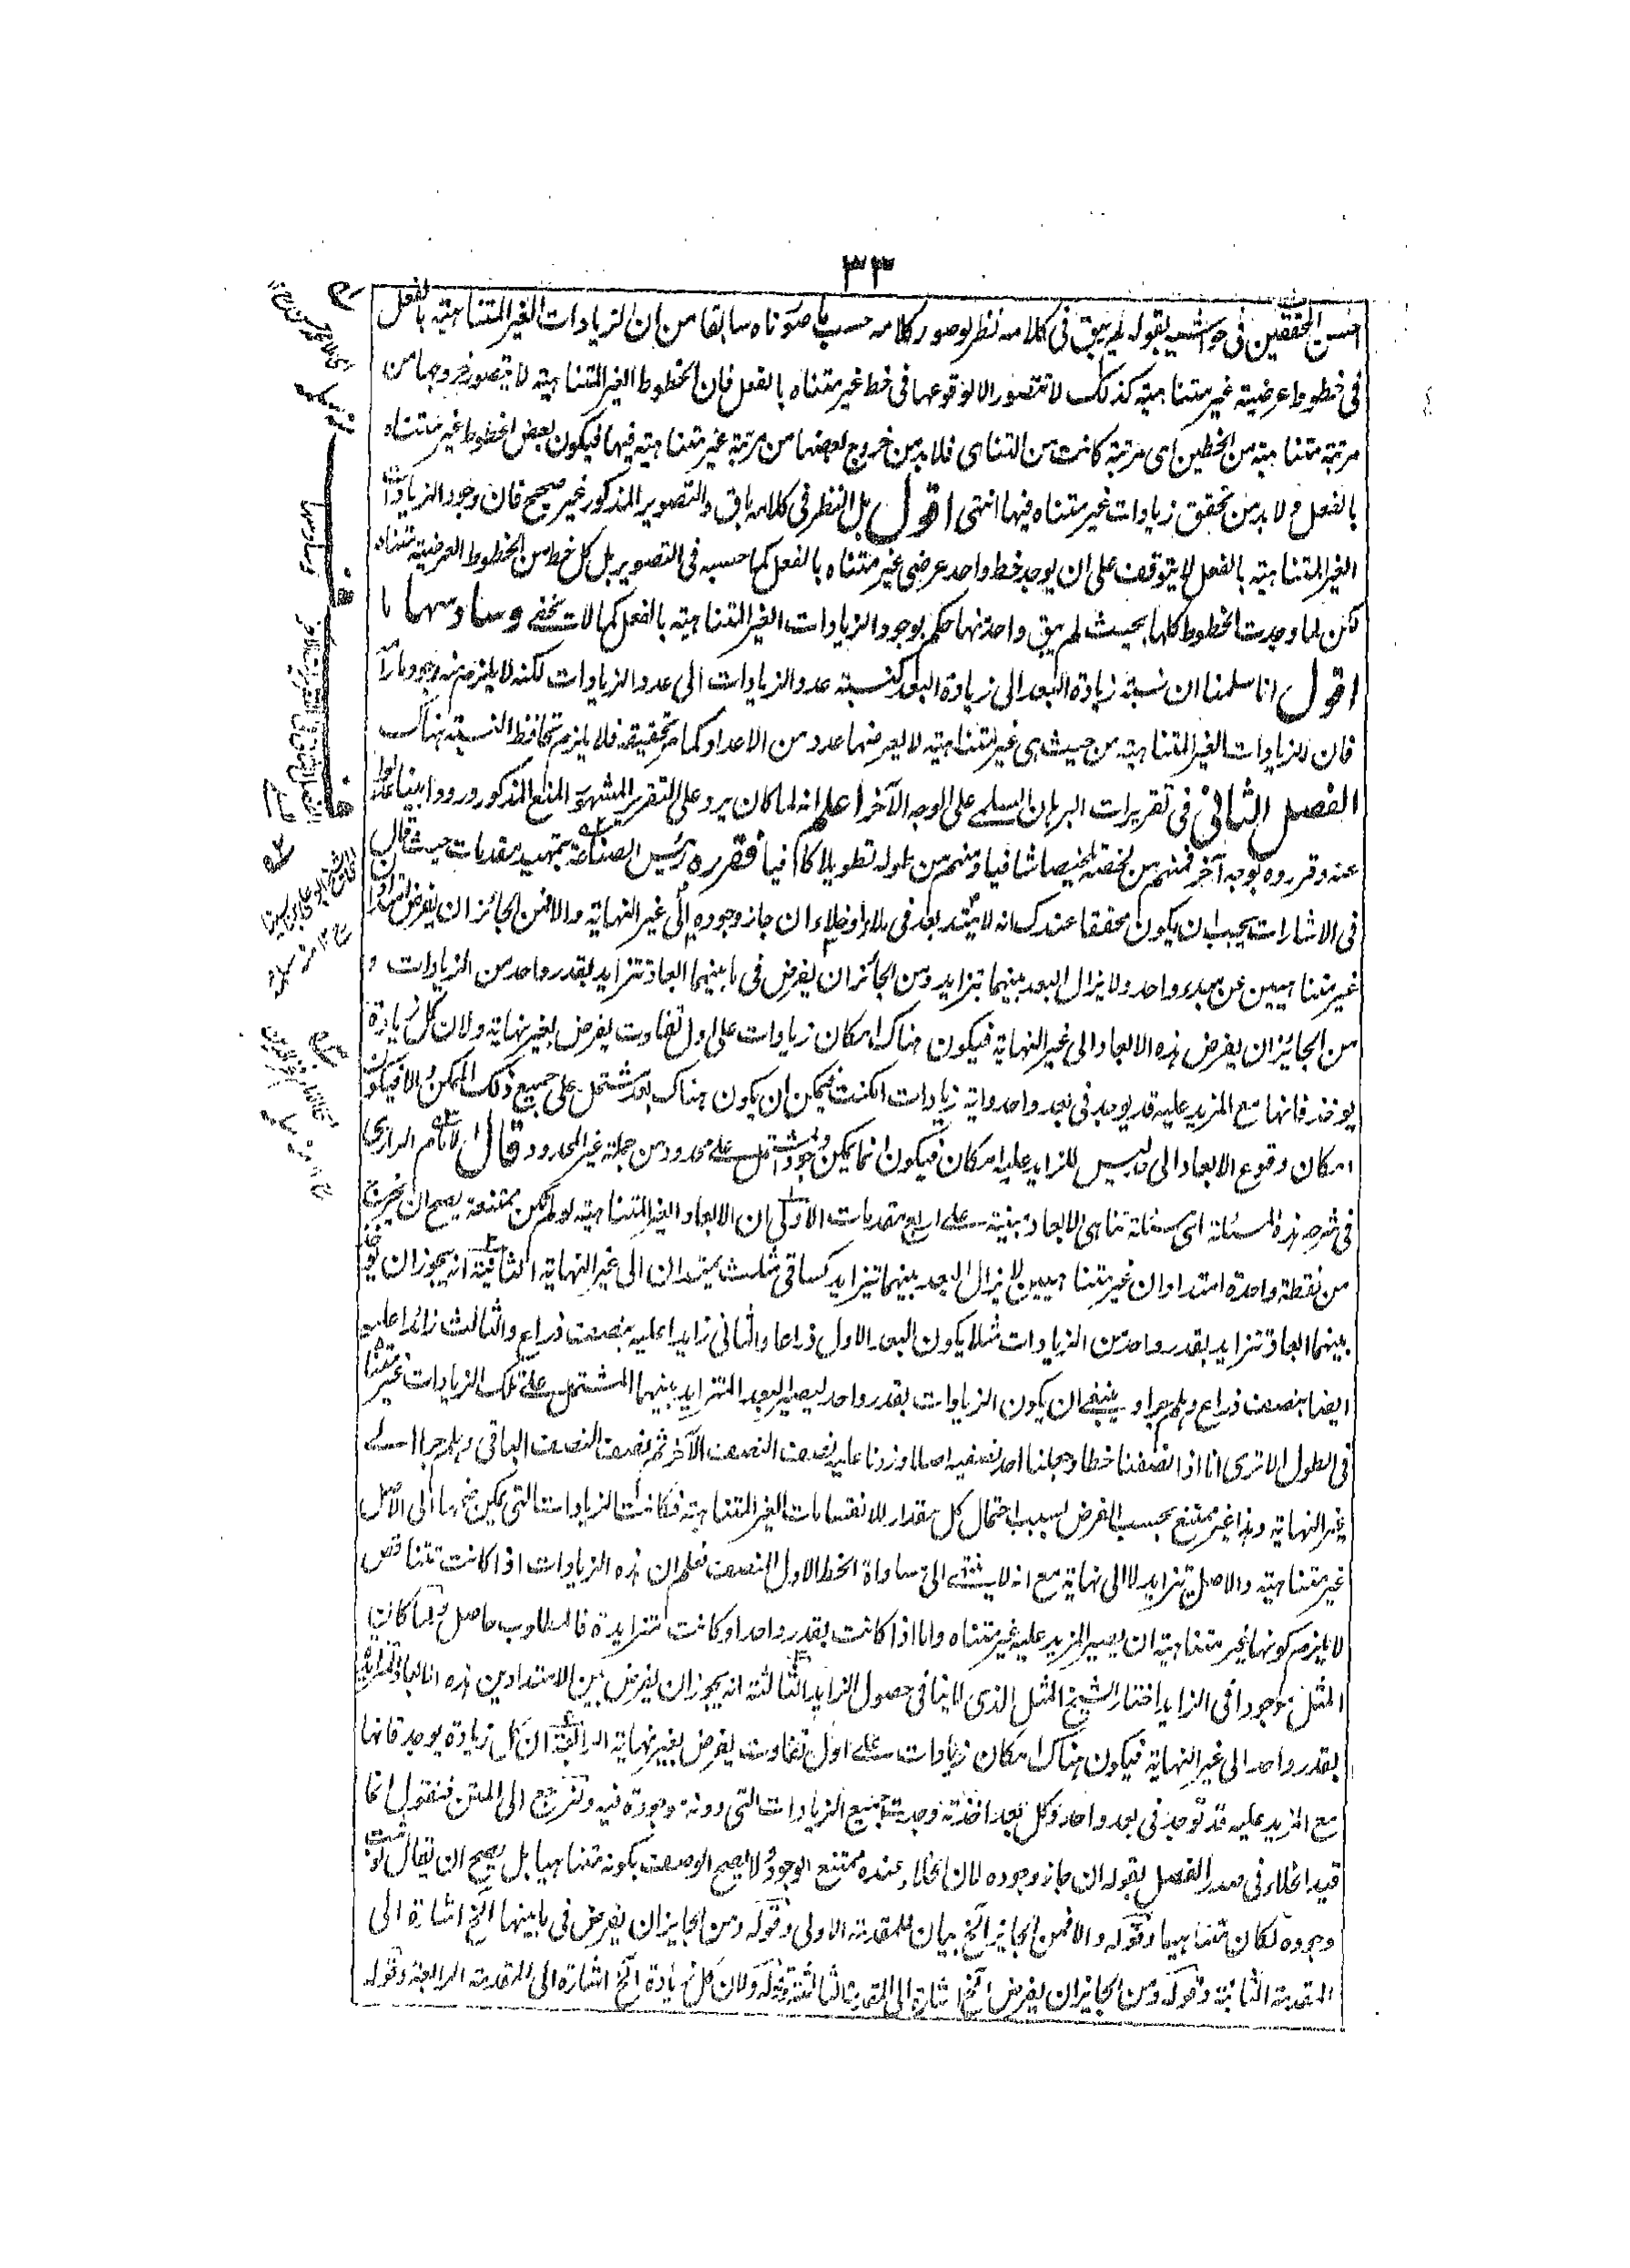 ٣٣
احسن المحققين فى حواشيه بقوله لم يبق فى كلامه نظر لو صور كلامه حسب ما صورناه سابقا من ان الزيادات الغير المتناهية بالفعل
فى خطوط عرضية غير متناهية كذلك لا تتصور الا لوقوعها فى خط غير متناه بالفعل فان الخطوط الغير المتناهية لا يتصور خروجها من
مرتبة متناهية من الخطين اى مرتبة كانت من التناهى فلا بد من خروج بعضها من مرتبة غير متناهية فيها فيكون بعض الخطوط غير متناه
بالفعل فلا بد من تحقق زيادات غير متناه فيها انتهى اقول بل النظر فى كلامه باق والتصوير المذكور غير صحيح فان وجود الزيادات
الغير المتناهية بالفعل لا يتوقف على ان يوجد خط واحد عرضى غير متناه بالفعل كما حسبه فى التصوير بل كل خط من الخطوط العرضية متناه
لكن لما وجدت الخطوط كلها بحيث لم يبق واحد منها حكم بوجود الزيادات الغير المتناهية بالفعل كما لا يخفى وسادسها ما
اقول انا سلمنا ان نسبة زيادة البعد الى زيادة البعد كنسبة عدد الزيادات الى عدد الزيادات لكنه لا يلزم منه وجود ما
فان الزيادات الغير المتناهية من حيث هى غير متناهية لا يعرضها عدد من الاعداد كما مر تحقيقه فلا يلزم تحافظ النسبة هناك
الفصل الثانى فى تقريرات البرهان السلمى على الوجه الآخر اعلم انه لما كان يرد على التقرير المشهور المنع المذكور ورودا بينا
عنه وقرروه بوجه آخر فمنهم من لخصه تلخيصا شافيا ومنهم من طوله تطويلا كافيا فقرره رئيس الصناعة بتمهيد مقدمات حيث قال
فى الاشارات يجب ان يكون محققا عندك انه لا يمتد بعد فى ملاء او خلاء ان جاز وجوده الى غير النهاية والا فمن الجائز ان يفرض امتدادان
غير متناهيين عن مبدء واحد ولا يزال البعد بينهما يتزايد ومن الجائز ان يفرض فى ما بينهما ابعاد تتزايد بقدر واحد من الزيادات و
من الجائز ان يفرض هذه الابعاد الى غير النهاية فيكون هناك امكان زيادات على اول تفاوت يفرض بغير نهاية ولان كل زيادة
يوخذ فانها مع المزيد عليه قد يوجد فى بعد واحد واية زيادات امكنت فيمكن ان يكون هناك بعد يشتمل على جميع ذلك الممكن والا فيكون
امكان وقوع الابعاد الى ما ليس للزايد عليه امكان فيكون انما يمكن وجود المشتمل على محدود من جملة غير المحدود قال الامام الرازى
فى شرحه هذه المسئلة اى مسئلة تناهى الابعاد مبنية على اربع مقدمات الاولى ان الابعاد الغير المتناهية لو لم تكن ممتنعة يصح ان يخرج
من نقطة واحدة امتدادان غير متناهيين لا يزال البعد بينهما يتزايد كساقى مثلث يمتدان الى غير النهاية الثانية انه يجوز ان يوجد
بينهما ابعاد تتزايد بقدر واحد من الزيادات مثلا يكون البعد الاول ذراعا والثانى زايدا عليه بنصف ذراع والثالث زائدا عليه
ايضا بنصف ذراع وهلم جرا وينبغى ان يكون الزيادات بقدر واحد ليصير البعد المتزايد بينهما المشتمل على تلك الزيادات غير متناه
فى الطول الا ترى انا اذا نصفنا خطا وجعلنا احد نصفيه اصلا وزدنا عليه نصف النصف الآخر ثم نصف النصف الباقى وهلم جرا الى
غير النهاية وهذا غير ممتنع بحسب الفرض بسبب احتمال كل مقدار للانقسامات الغير المتناهية فكانت الزيادات التى يمكن ضمها الى الاصل
غير متناهية والاصل يتزايد لا الى نهاية مع انه لا ينتهى الى مساواة الخط الاول المنصف فعلم ان هذه الزيادات اذا كانت تتناقص
لا يلزم كونها غير متناهية ان يصير المزيد عليه غير متناه واما اذا كانت بقدر واحد او كانت متزايدة فالمطلوب حاصل ولما كان
المثل موجودا فى الزايد اختار الشيخ المثل الذى لا ينافى حصول الزايد الثالثة انه يجوز ان يفرض بين الامتدادين هذه الابعاد المتزايدة
بقدر واحد الى غير النهاية فيكون هناك امكان زيادات على اول تفاوت يفرض بغير نهاية الرابعة ان كل زيادة يوجد فانها
مع المزيد عليه قد توجد فى بعد واحد وكل بعد اخذته وجدت جميع الزيادات التى دونه موجودة فيه ونرجع الى المتن فنقول انما
قيد الخلاء فى صدر الفصل بقوله ان جاز وجوده لان الخلاء عنده ممتنع الوجود ولا يصح الوصف بكونه متناهيا بل يصح ان يقال لو ثبت
وجوده لكان متناهيا وقوله والا فمن الجايز الخ بيان للمقدمة الاولى وقوله ومن الجايز ان يفرض فى ما بينهما الخ اشارة الى
المقدمة الثانية وقوله ومن الجايز ان يفرض الخ اشارة الى المقدمة الثالثة وقوله ولان كل زيادة الخ اشارة الى المقدمة الرابعة وقوله